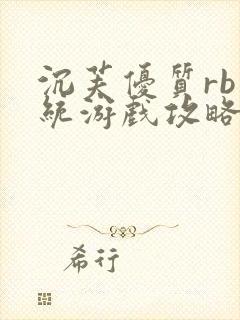 沉芙優質rb系
統游戲攻略
希行